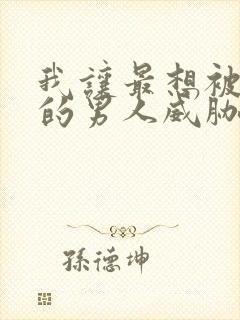 我讓最想被
的男人威脅
孫德坤